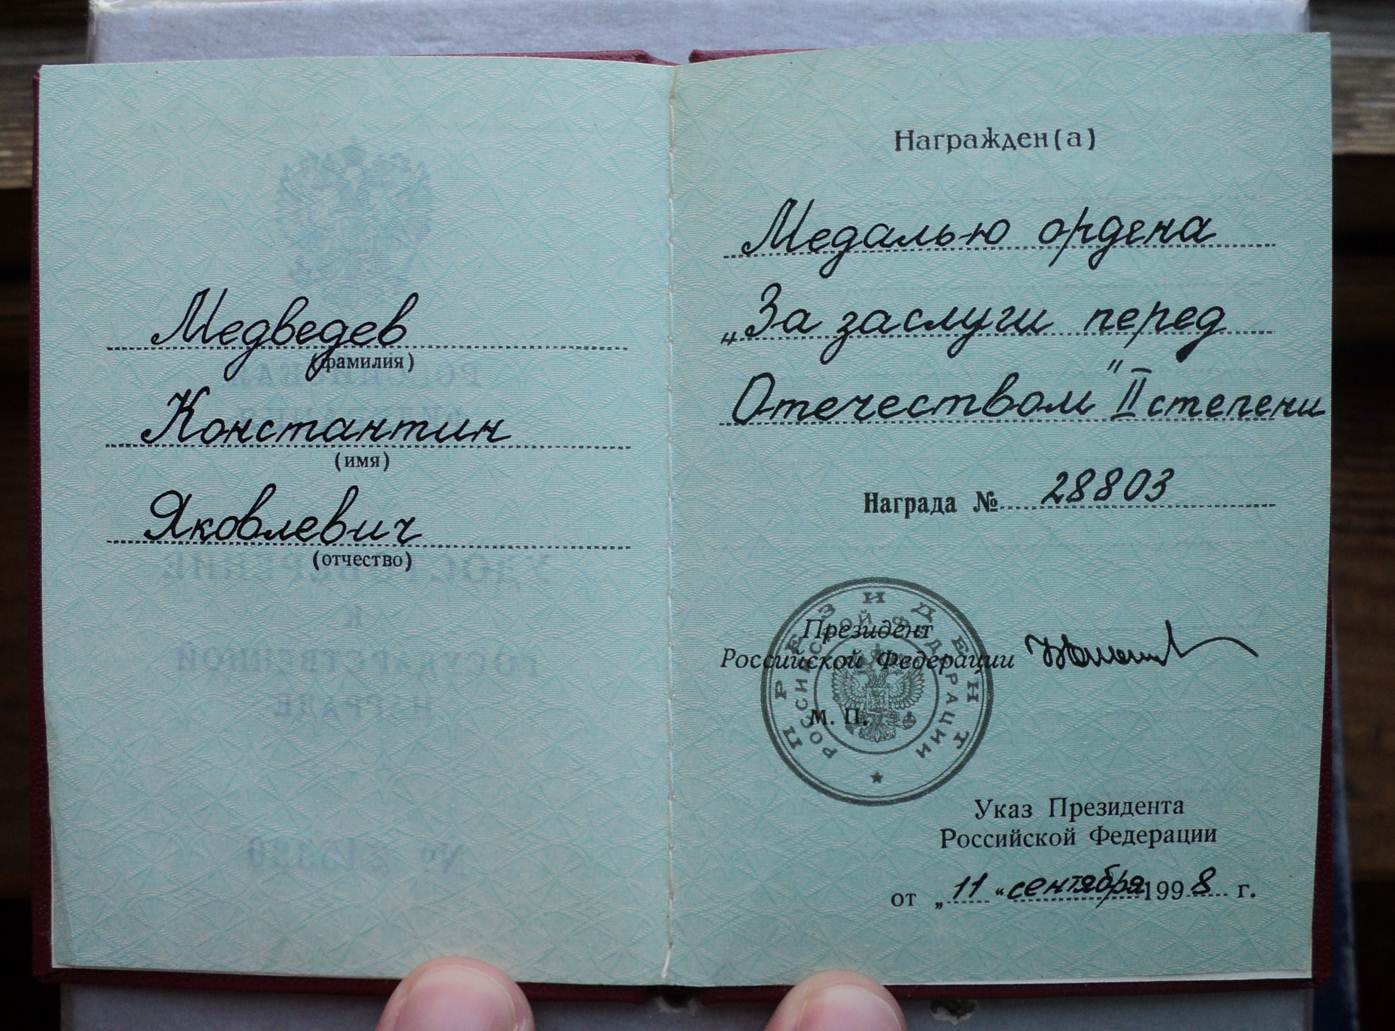 Медведев
(фамилия)
Константин
(имя)
Яковлевич
(отчество)
Награжден(а)
Медалью ордена
„За заслуги перед
Отечеством" II степени
Награда № 28803
Президент
Российской Федерации
М. П.
ПРЕЗИДЕНТ
РОССИЙСКОЙ ФЕДЕРАЦИИ
Указ Президента
Российской Федерации
от „11" сентября 1998 г.
РОССИЙСКАЯ
ФЕДЕРАЦИЯ
УДОСТОВЕРЕНИЕ
К
ГОСУДАРСТВЕННОЙ
НАГРАДЕ
№